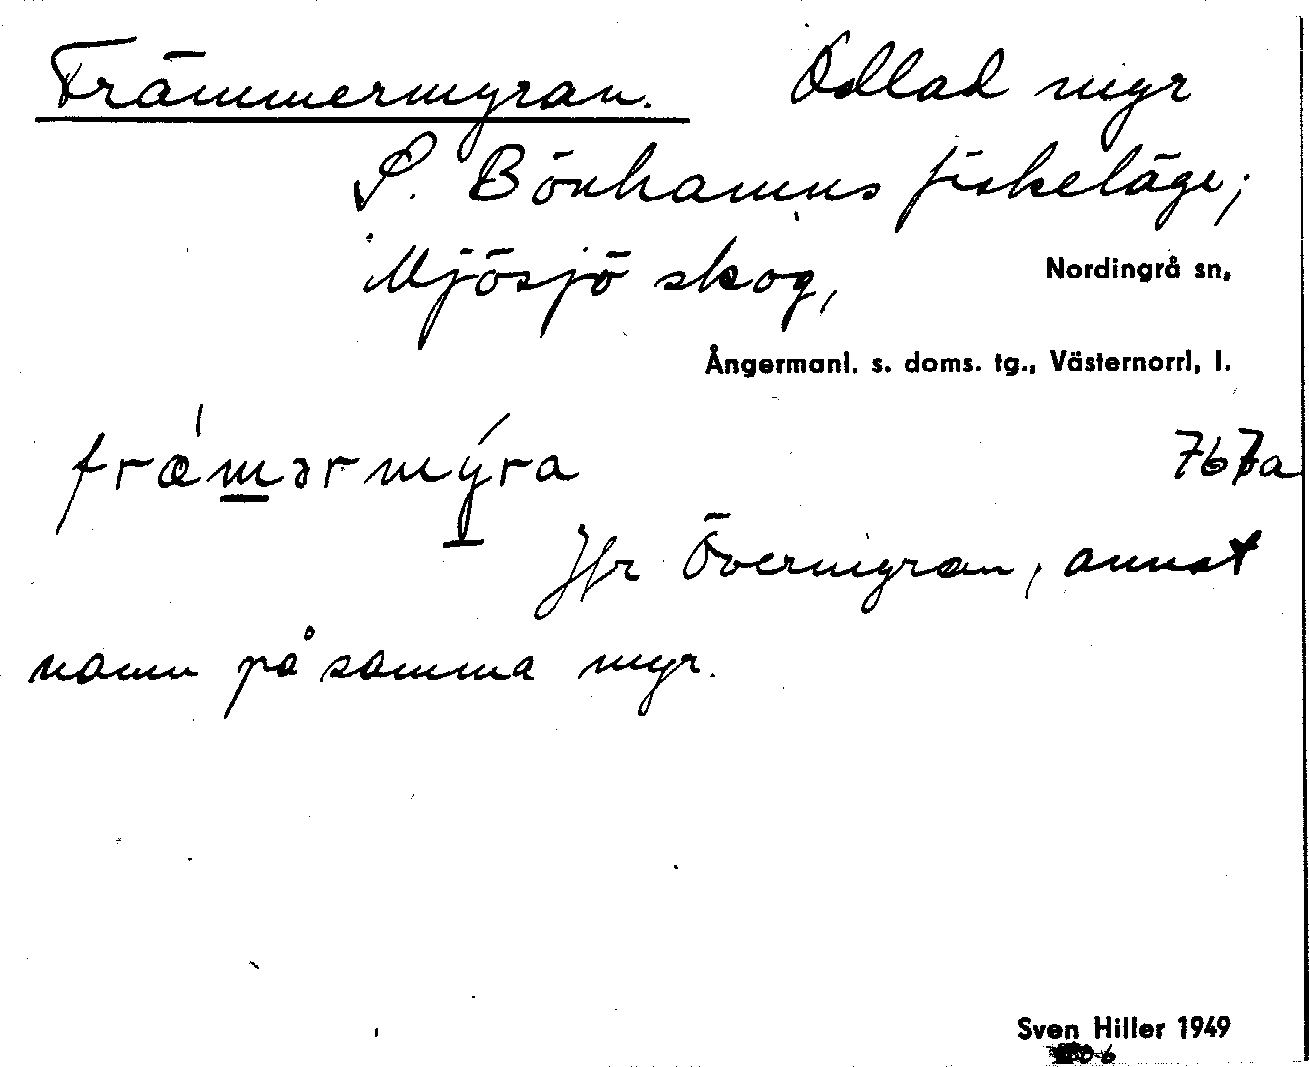 Främmermyran. Odlad myr
S. Bönhamns fiskeläge,
Mjösjö skog, Nordingrå sn,
Ångermanl. s. doms. tg., Västernorrl, l.
fræ´mərmy´ra 767a
Jfr Övermyran, annat
namn på samma myr.
Sven Hiller 1949